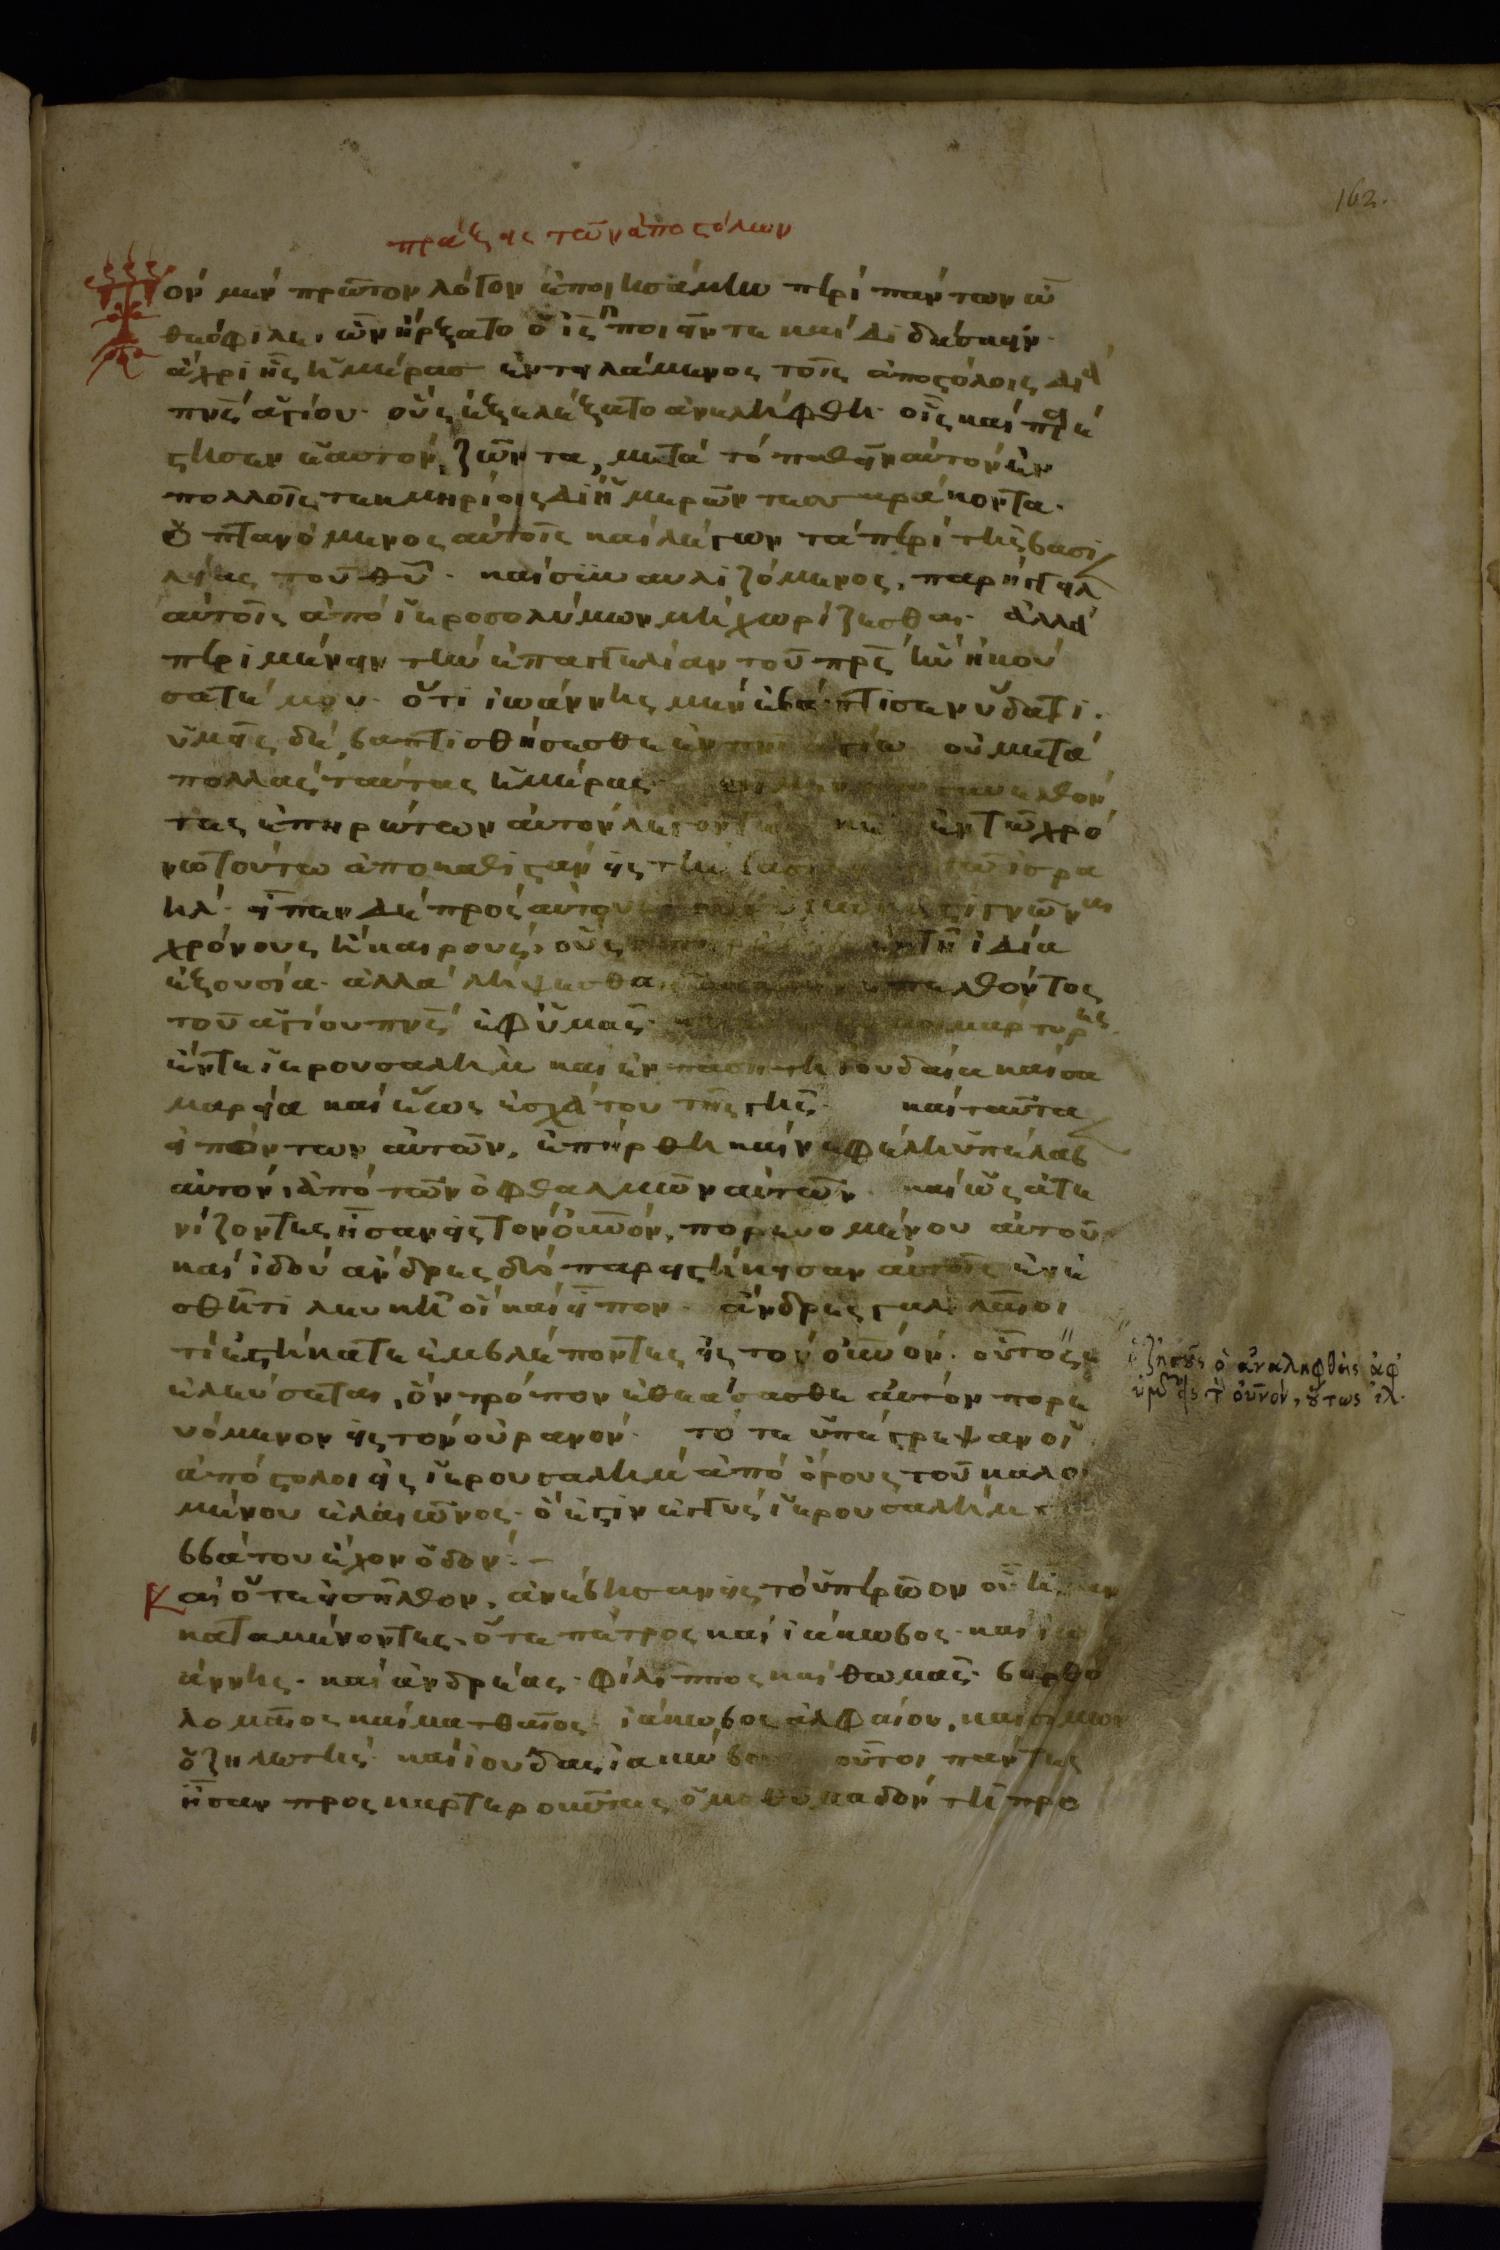 162.
πράξεις τῶν ἀποστόλων
Τὸν μὲν πρῶτον λόγον ἐποιησάμην περὶ πάντων ὦ
θεόφιλε, ὧν ἤρξατο ὁ ι̅ς̅ ποιεῖν τε καὶ διδάσκειν·
ἄχρι ἧς ἡμέρας ἐντειλάμενος τοῖς ἀποστόλοις διὰ
πν̅ς̅ ἁγίου· οὓς ἐξελέξατο ἀνελήφθη· οἷς καὶ παρέ
στησεν ἑαυτὸν, ζῶντα, μετὰ τὸ παθεῖν αὐτὸν ἐν
πολλοῖς τεκμηρίοις δι ἡμερῶν τεσσαράκοντα·
ὀπτανόμενος αὐτοῖς καὶ λέγων τὰ περὶ τῆς βασι
λείας τοῦ θ̅υ̅· καὶ συναυλιζόμενος, παρήγγειλ
αὐτοῖς ἀπὸ ἱεροσολύμων μὴ χωρίζεσθαι· ἀλλὰ
περιμένειν τὴν ἐπαγγελίαν τοῦ π̅ρ̅ς̅ ἣν ἠκού
σατέ μου· ὅτι ἰωάννης μὲν ἐβάπτισεν ὕδατι·
ὑμεῖς δὲ βαπτισθήσεσθε ἐν πν̅ι̅ ἁγίω οὐ μετὰ
πολλὰς ταύτας ἡμέρας· συνελθόν
τες ἐπηρώτων αὐτὸν λέγοντες κ̅ε̅ ἐν τῶ χρό
νω τούτω ἀποκαθιστάνεις τὴν βασιλείαν τῶ ἰσρα
ήλ· εἶπεν δὲ πρὸς αὐτούς ὑμῶν ἐστι γνῶναι
χρόνους ἢ καιροὺς, οὓς ἐν τῆ ἰδία
ἐξουσία· ἀλλὰ λήψεσθε ἐπελθόντος
τοῦ ἁγίου πν̅ς̅ ἐφ ὑμᾶς· μάρτυρες
ἔν τε ἱερουσαλὴμ καὶ ἐν πάση τῆ ἰουδαία καὶ σα
μαρεία καὶ ἕως ἐσχάτου τῆς γῆς· καὶ ταῦτα
εἰπόντων αὐτῶν, ἐπήρθη καὶ νεφέλη ὑπέλαβ
αὐτὸν, ἀπὸ τῶν ὀφθαλμῶν αὐτῶν· καὶ ὡς ἀτε
νίζοντες ἦσαν εἰς τὸν οὐ̅νόν, πορευομένου αὐτοῦ·
καὶ ἰδοὺ ἄνδρες δύο παρειστήκεισαν αὐτοῖς ἐν ἐ
σθῆτι λευκῆ οἳ καὶ εἶπον· ἄνδρες γαλιλαῖοι
τί ἑστήκατε ἐμβλέποντες εἰς τὸν οὐ̅νόν· οὗτος
ἐλεύσεται, ὃν τρόπον ἐθεάσασθε αὐτὸν πορευ
όμενον εἰς τὸν οὐρανόν· τότε ὑπέστρεψαν οἱ
ἀπόστολοι εἰς ἱερουσαλὴμ ἀπὸ ὄρους τοῦ καλου
μένου ἐλαιῶνος· ὅ ἐστιν ἐγγὺς ἱερουσαλὴμ
ββάτου ἔχον ὁδόν·
Καὶ ὅτε εἰσῆλθον, ἀνέβησαν εἰς τὸ ὑπερῶον οὗ ἦσαν
καταμένοντες· ὅ τε πέτρος καὶ ἰάκωβος· καὶ ἰω
άννης· καὶ ἀνδρέας· φίλιππος καὶ θωμᾶς· βαρθο
λομαῖος καὶ ματθαῖος· ἰάκωβος ἀλφαίου, καὶ σίμων
ὁ ζηλωτὴς· καὶ ἰούδας ἰακώβου οὗτοι πάντες
ἦσαν προσκαρτεροῦντες ὁμοθυμαδὸν τῆ προ
ὁ ἰησοῦς ὁ ἀναληφθεὶς ἀφ
ὑμῶν εἰς τ οὐ̅νόν, οὕτως ἐλ·